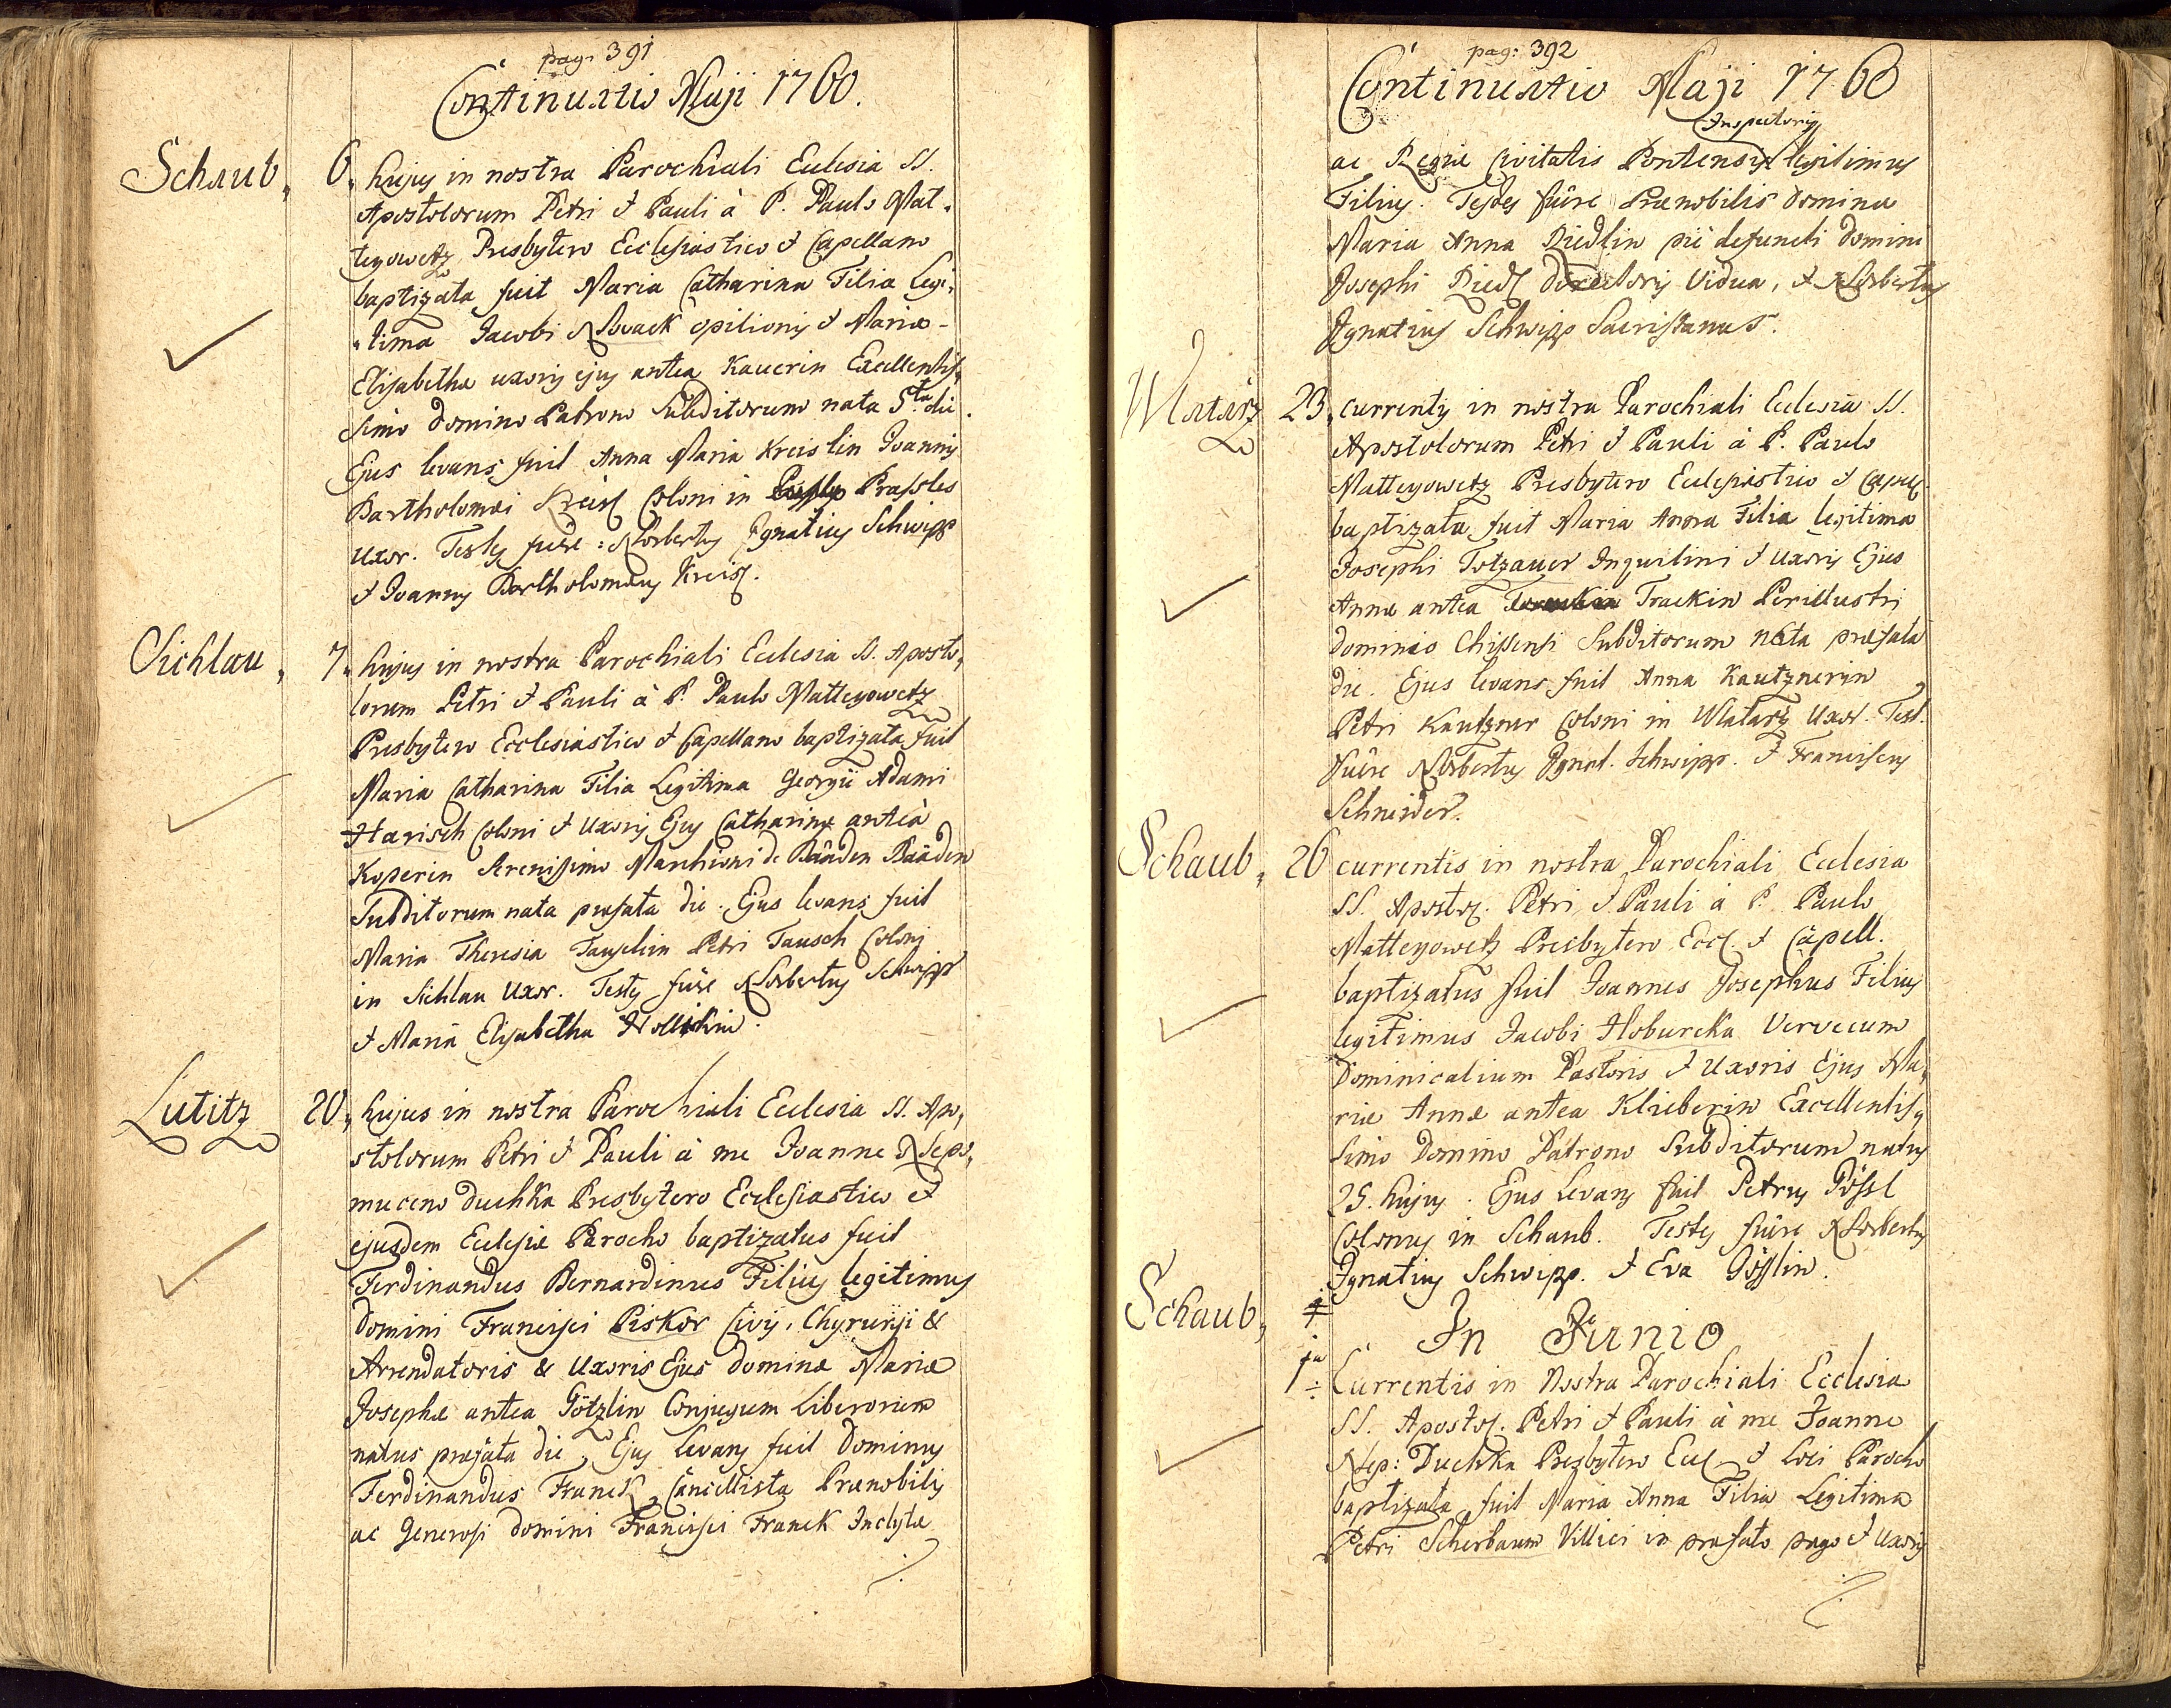 pag. 391
Continuatio Maji 1760.
Schaub, 6. hujus in nostra Parochiali Ecclesia SS.
Apostolorum Petri & Pauli à P. Paulo Mat-
teyowetz Presbytero Ecclesiastico & Capellano
baptizata fuit Maria Catharina Filia Legi-
tima Jacobi Nowack opilionis & Mariæ
Elisabethæ uxoris ejus antea Kauerin Excellentis-
simo Domino Patrono Subditorum nata 5ta die.
Ejus levans fuit Anna Maria Kreislin Joannis
Bartholomæi Kreisl Coloni in Prassles
uxor. Testes fuêre: Norbertus Ignatius Schwipp
& Joannes Bartholomæus Kreisl.
Sichlau, 7. hujus in nostra Parochiali Ecclesia SS. Aposto-
lorum Petri & Pauli à P. Paulo Matteyowetz
Presbytero Ecclesiastico & Capellano baptizata fuit
Maria Catharina Filia Legitima Georgii Adami
Harisch Coloni & Uxoris Ejus Catharinæ antea
Koperin Serenissimo Marchioni de Baaden Baaden
Subditorum nata præfata die. Ejus levans fuit
Maria Theresia Tauschin Petri Tausch Coloni
in Sichlau Uxor. Testes fuêre Norbertus Schwipp
& Maria Elisabetha
Lutitz 20, hujus in nostra Parochiali Ecclesia SS. Apo-
stolorum Petri & Pauli à me Joanne Nepo-
muceno Duchka Presbytero Ecclesiastico &
ejusdem Ecclesiæ Parocho baptizatus fuit
Ferdinandus Bernardinus Filius legitimus
Domini Francisci Piskor Civis, Chyrurgi &
Arrendatoris & Uxoris Ejus Dominæ Mariæ
Josephæ antea Götzlin Conjugum Liberorum
natus præfata die, Ejus Levans fuit Dominus
Ferdinandus Franck, Cancellista Prænobilis
ac Generosi Domini Francisci Franck Inclytæ
pag: 392
Continuatio Maji 1760
Inspectoris
ac Regiæ Civitatis Pontensis legitimus
Filius. Testes fuêre Prænobilis Domina
Maria Anna Riedlin piè defuncti Domini
Josephi Riedl Directoris Vidua, & Norbertus
Ignatius Schwipp Sacristanus.
Wlatarz 23, currentis in nostra Parochiali Ecclesia SS.
Apostolorum Petri & Pauli à P. Paulo
Matteyowetz Presbytero Ecclesiastico & Capell.
baptizata fuit Maria Anna Filia legitima
Josephi Totzauer Inquilini & Uxoris Ejus
Annæ antea Trackin Perillustri
Dominio Chissensi Subditorum nata præfata
die. Ejus levans fuit Anna Kautznerin
Petri Kautzner Coloni in Wlatarz Uxor. Test.
fuêre Norbertus Ignat. Schwipp. & Franciscus
Schneider.
Schaub, 26 currentis in nostra Parochiali Ecclesia
SS. Apostol. Petri & Pauli à P. Paulo
Matteyowetz Presbytero Eccl. & Capell.
baptizatus fuit Joannes Josephus Filius
legitimus Jacobi Hoburcka Vervecum
Dominicalium Pastoris & Uxoris Ejus Ma-
riæ Annæ antea Klieberin Excellentis-
simo Domino Patrono Subditorum natus
25. hujus. Ejus Levans fuit Petrus Pössl
Colonus in Schaub. Testes fuêre Norbertus
Ignatius Schwipp. & Eva Pösslin.
In Junio
Schaub, 1 Currentis in Nostra Parochiali Ecclesia
SS. Apostol. Petri & Pauli à me Joanne
Nep: Duchka Presbytero Eccl. & Loci Parocho
baptizata fuit Maria Anna Filia Legitima
Petri Scherbaum Villici in præfato pago & Uxoris